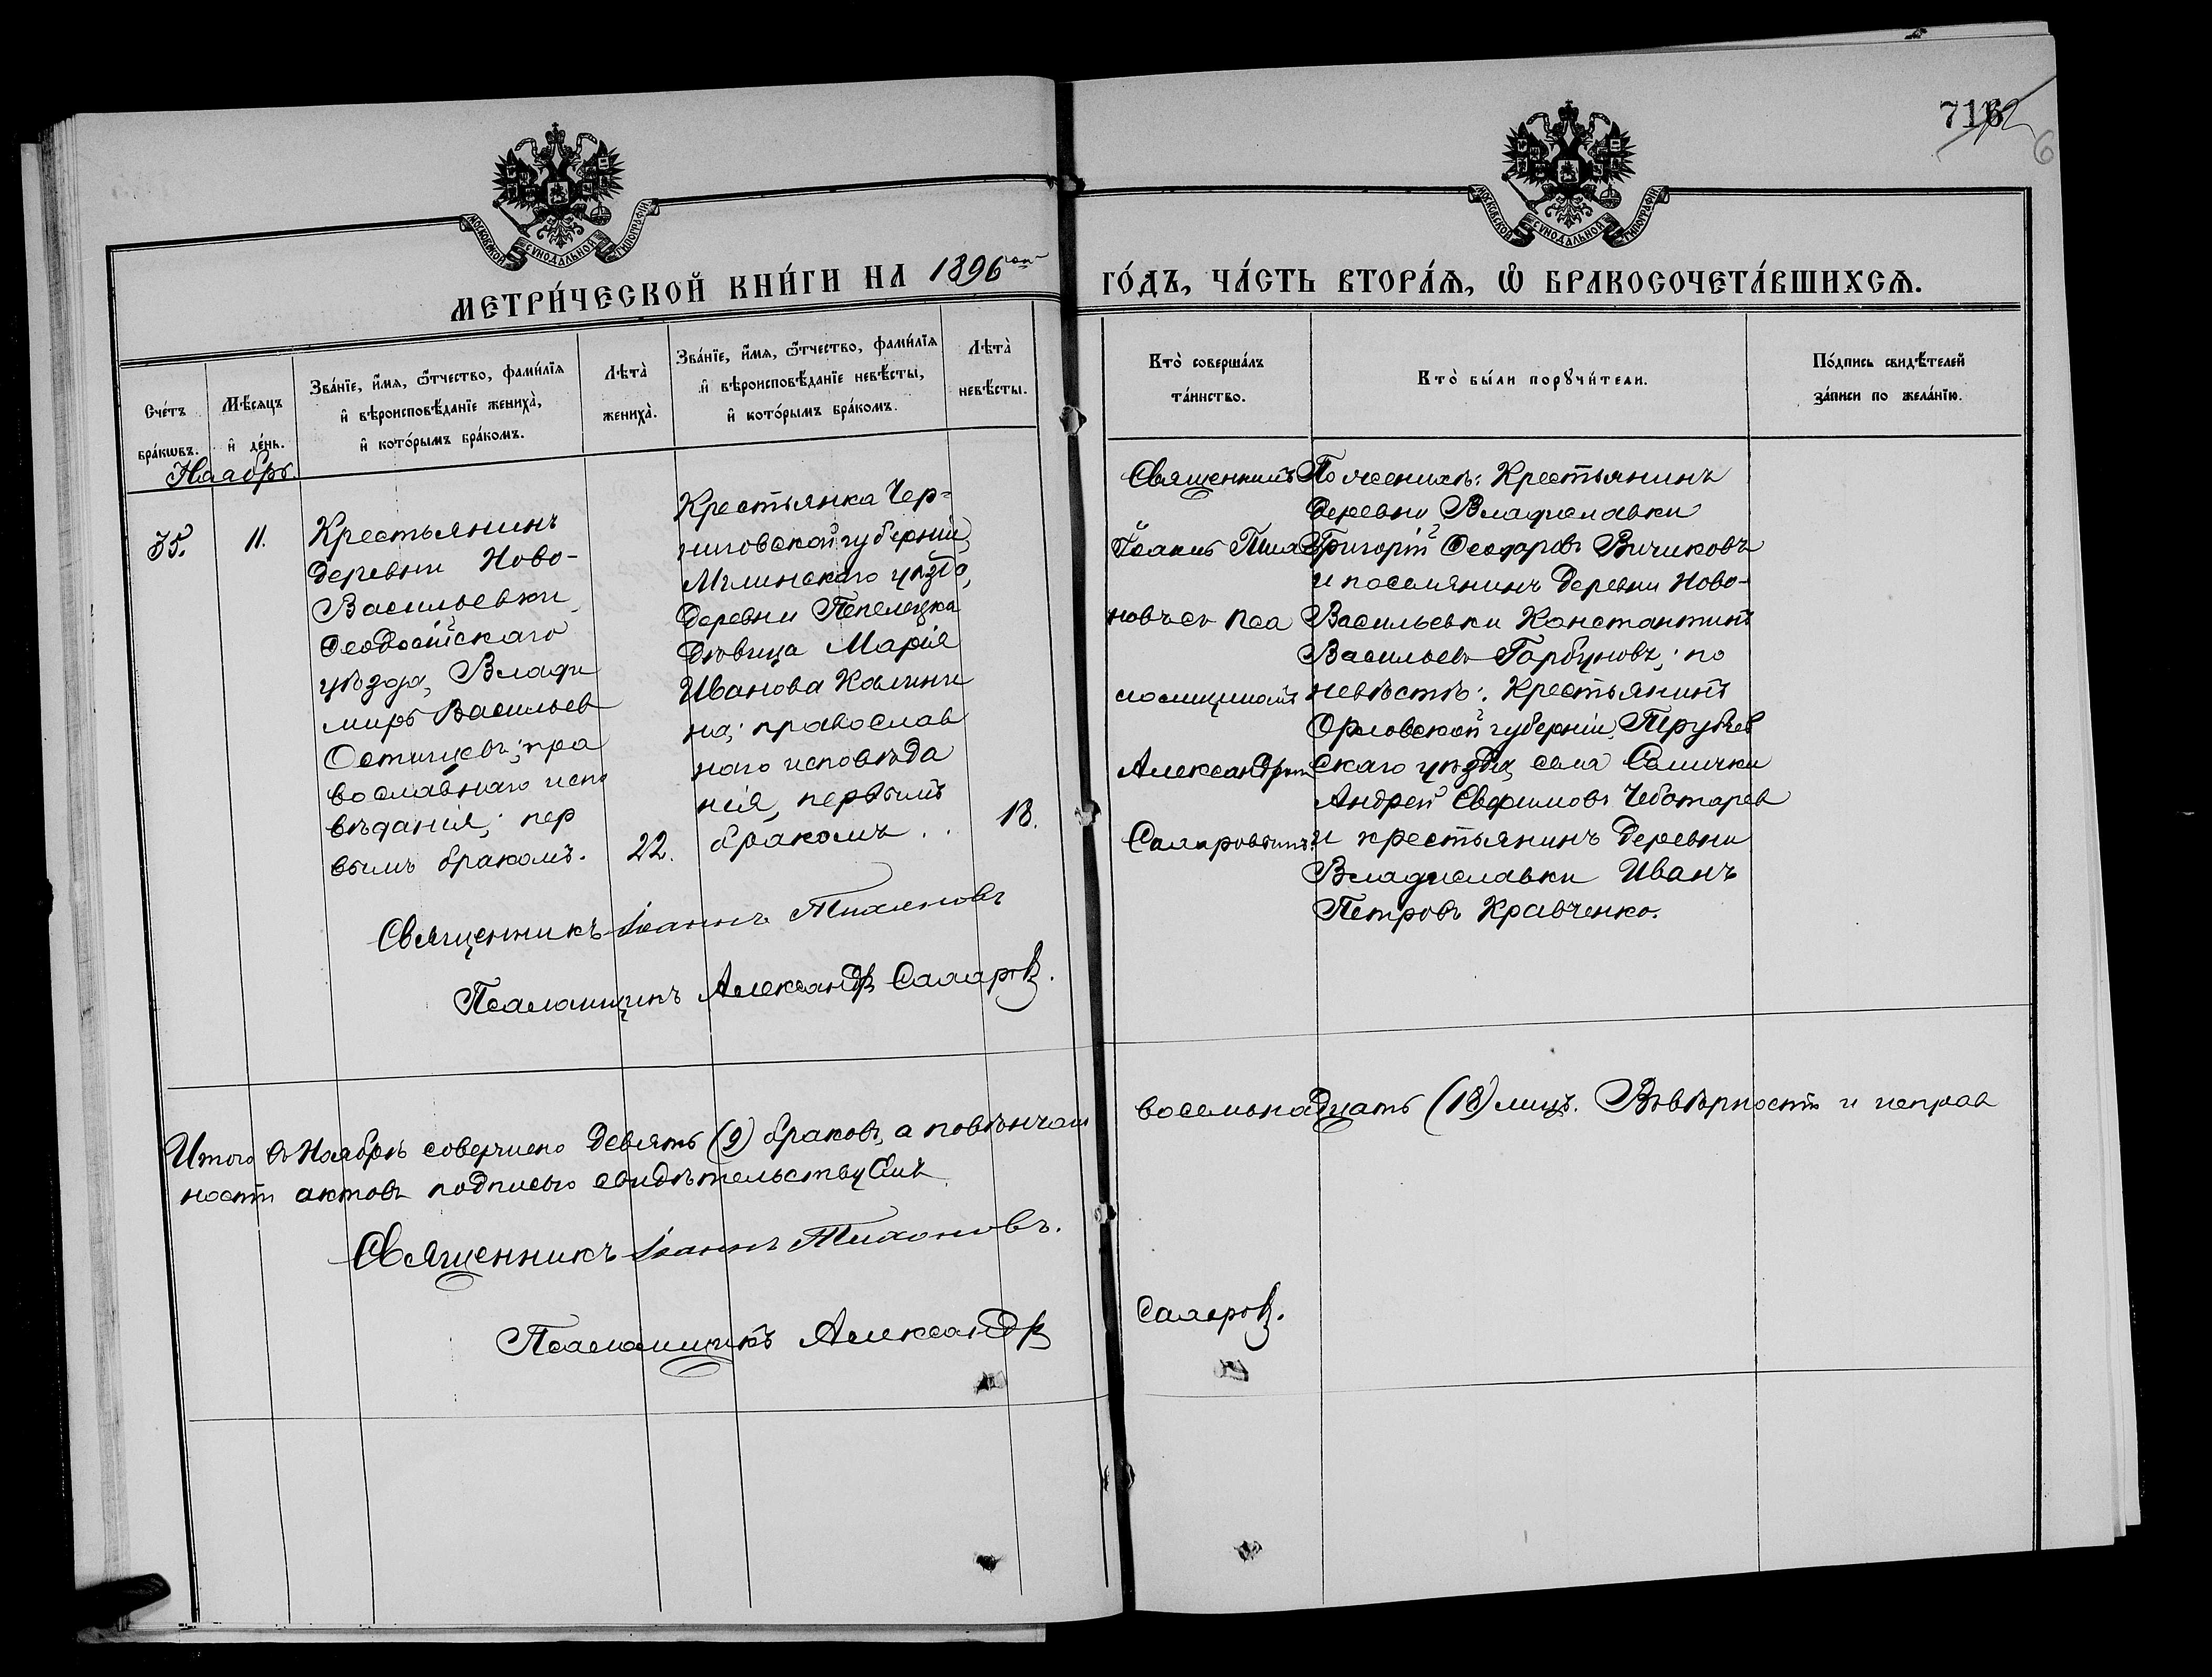 716
6
МОСКОВСКОЙ СѴНОДАЛЬНОЙ ТИПОГРАФІИ
МОСКОВСКОЙ СѴНОДАЛЬНОЙ ТИПОГРАФІИ
МЕТРИ́ЧЕСКОЙ КНИ́ГИ НА 1896
ГО́ДЪ, ЧА́СТЬ ВТОРА́Ѧ, Ѽ БРАКОСОЧЕТА́ВШИХСѦ.
Сче́тъ
бра́кѡвъ.
Мѣ́сяцъ
и҆ де́нь.
Зва́нїе, и҆́мѧ, ѻ҆́тчество, фами́лїѧ
и҆ вѣроисповѣ́данїе жениха̀,
и҆ кото́рымъ бра́комъ.
Лѣта̀
жениха̀.
Зва́нїе, и҆́мѧ, ѻ҆́тчество, фами́лїѧ
и҆ вѣроисповѣ́данїе невѣ́сты,
и҆ кото́рымъ бра́комъ.
Лѣта̀
невѣ́сты.
Кто̀ соверша́лъ
та́инство.
Кто̀ бы́ли порꙋчи́тели.
По́дпись свидѣ́телей
за́писи по жела́нїю.
Ноябрь.
35.
11.
Крестьянинъ
деревни Ново-
Васильевки,
Ѳеодосійскаго
уѣзда, Влади
миръ Васильев
православнаго испо
вѣданія; пер
вымъ бракомъ.
22.
Крестьянка Чер-
ниговской губерніи,
Мглинскаго уѣзда,
деревни
Дѣвица Марія
Иванова Калини
на; православ
наго исповѣда
нія, первымъ
бракомъ..
18.
Священникъ Іоаннъ Тихоновъ
Псаломщикъ Александръ
Священникъ
Іоаннъ Тихо
новъ съ пса
ломщикомъ
Александромъ
По женихѣ: Крестьянинъ
деревни Владиславки
Григорій Ѳеодоровъ Вичиковъ
и поселянинъ деревни Ново-
Васильевки Константинъ
Васильевъ Горбуновъ; по
невѣстѣ: Крестьянинъ
Орловской губерніи, Трубчев
скаго уѣзда, села
Андрей Евфимовъ Чеботарев
и крестьянинъ деревни
Владиславки Иванъ
Петровъ Кравченко.
Итого въ Ноябрѣ совершено девять (9) браковъ, а повѣнчано
восемьнадцать (18) лицъ. Въ вѣрности и исправ
ности актовъ подписью свидѣтельствуемъ
Священникъ Іоаннъ Тихоновъ.
Псаломщикъ Александръ